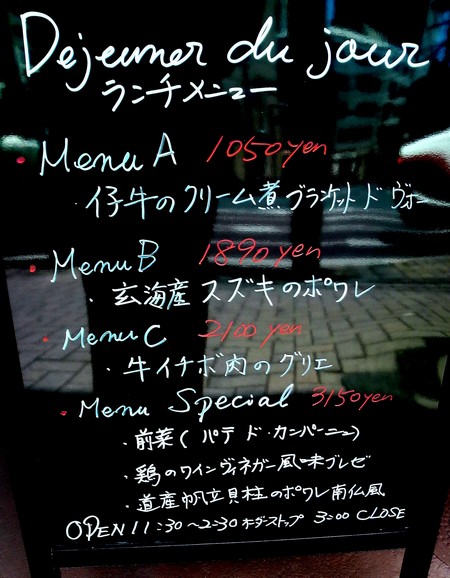 Dejeuner du jour
ランチメニュー
Menu A 1050yen
・仔牛のクリーム煮 ブランケット ド ヴォー
Menu B 1890yen
・玄海産 スズキのポワレ
Menu C 2100yen
・牛イチボ肉のグリエ
Menu Special 3150yen
・前菜(パテ ド・カンパーニュ)
・鶏のワインヴィネガー風味ブレゼ
・道産帆立貝柱のポワレ南仏風
OPEN 11:30〜2:30 オーダーストップ 3:00 CLOSE